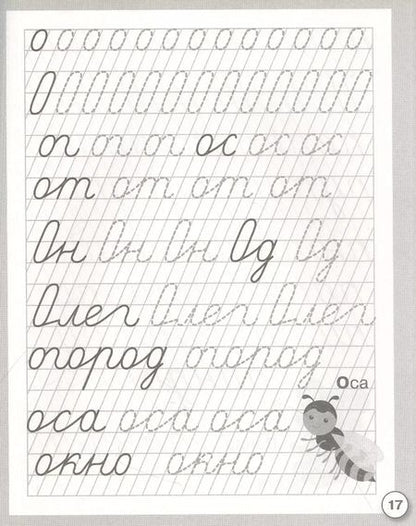 о о о о о о о о о о о о о
О О О О О О О О О О О О О О
ог ог ог ос ос ос
от от от от
Он Он Он Од Од
Олег Олег Олег
огород огород
Оса
оса оса оса
окно окно
17